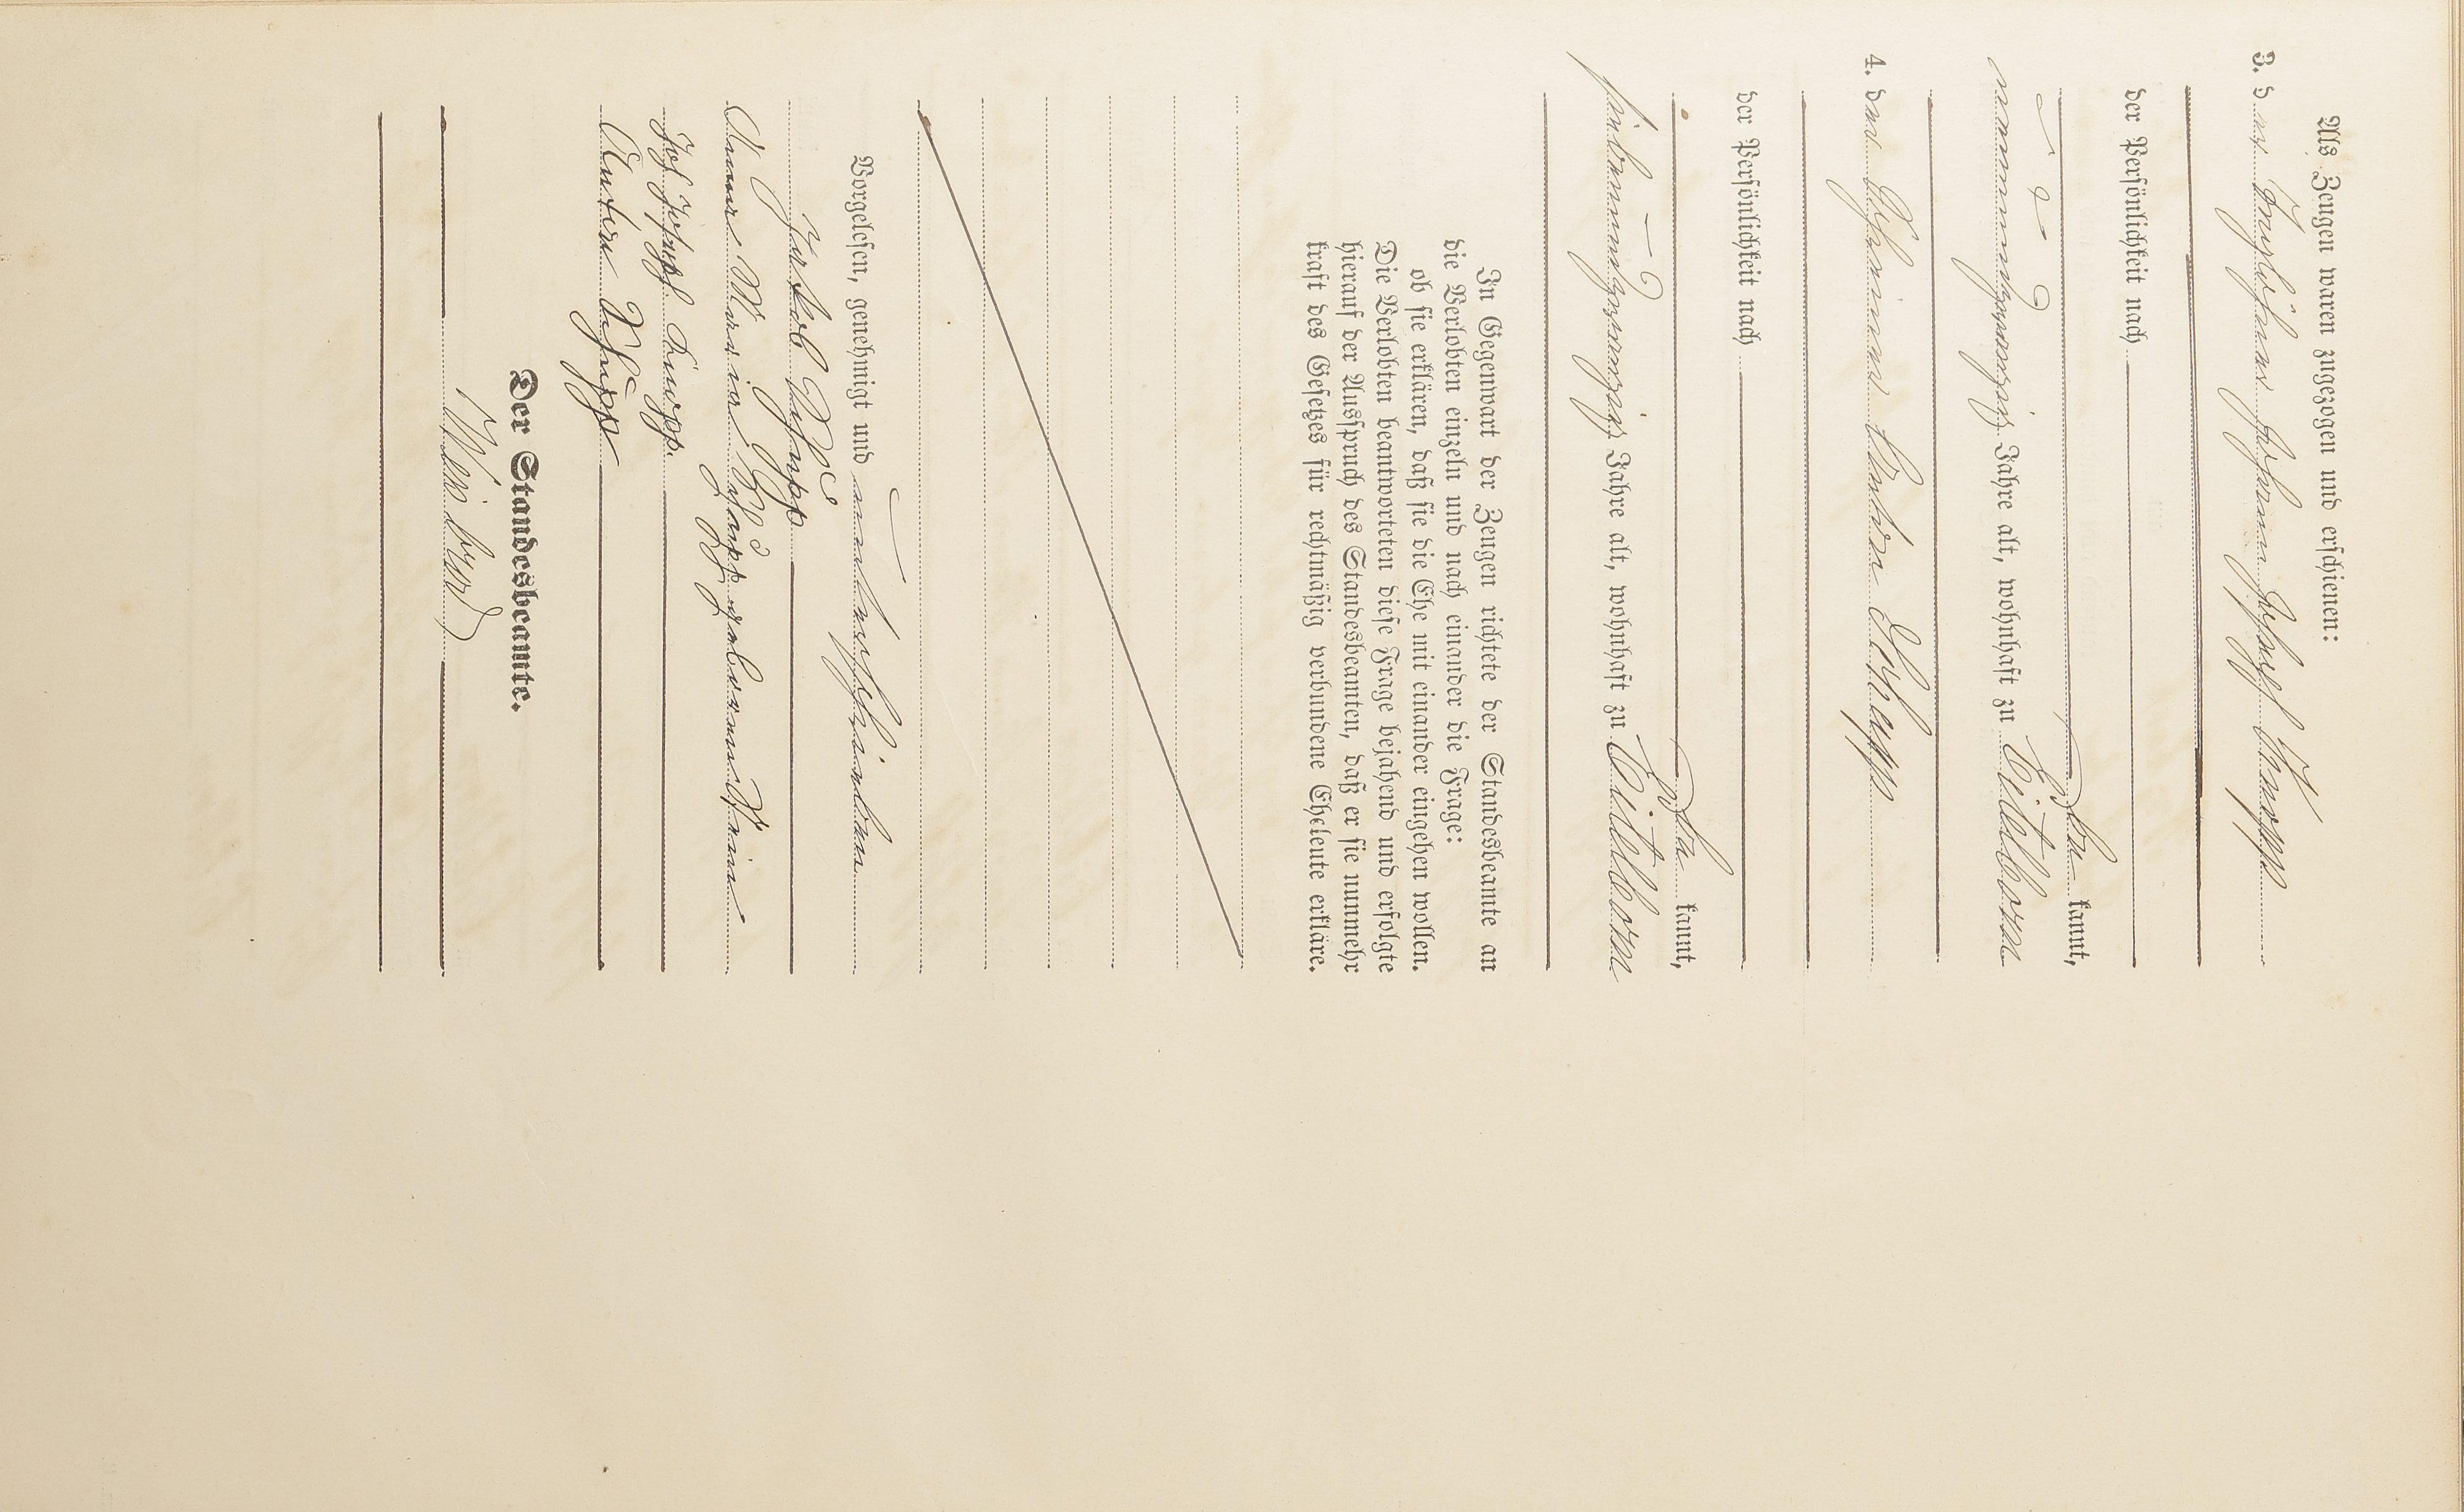 Als Zeugen waren zugezogen und erschienen:
3. der Taglöhner Johann Joseph Knopp
der Persönlichkeit nach
be kannt,
neunundzwanzig Jahre alt, wohnhaft zu Eitelborn
4. der Anton Schupp
der Persönlichkeit nach
be kannt,
siebenundzwanzig Jahre alt, wohnhaft zu Eitelborn
In Gegenwart der Zeugen richtete der Standesbeamte an
die Verlobten einzeln und nach einander die Frage:
ob sie erklären, daß sie die Ehe mit einander eingehen wollen.
Die Verlobten beantworteten diese Frage bejahend und erfolgte
hierauf der Ausspruch des Standesbeamten, daß er sie nunmehr
kraft des Gesetzes für rechtmäßig verbundene Eheleute erkläre.
Vorgelesen, genehmigt und unterschrieben
Jakob Schupp
Anna Maria Schupp geborene
Joh Joseph Knopp
Anton Schupp
Der Standesbeamte.